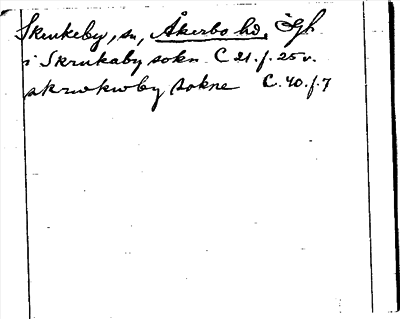 Skrukeby, sn, Åkerbo hd, Ögl.
i Skrukaby sokn C 21. f. 25 v.
skrwkwby sokne C. 40. f. 7